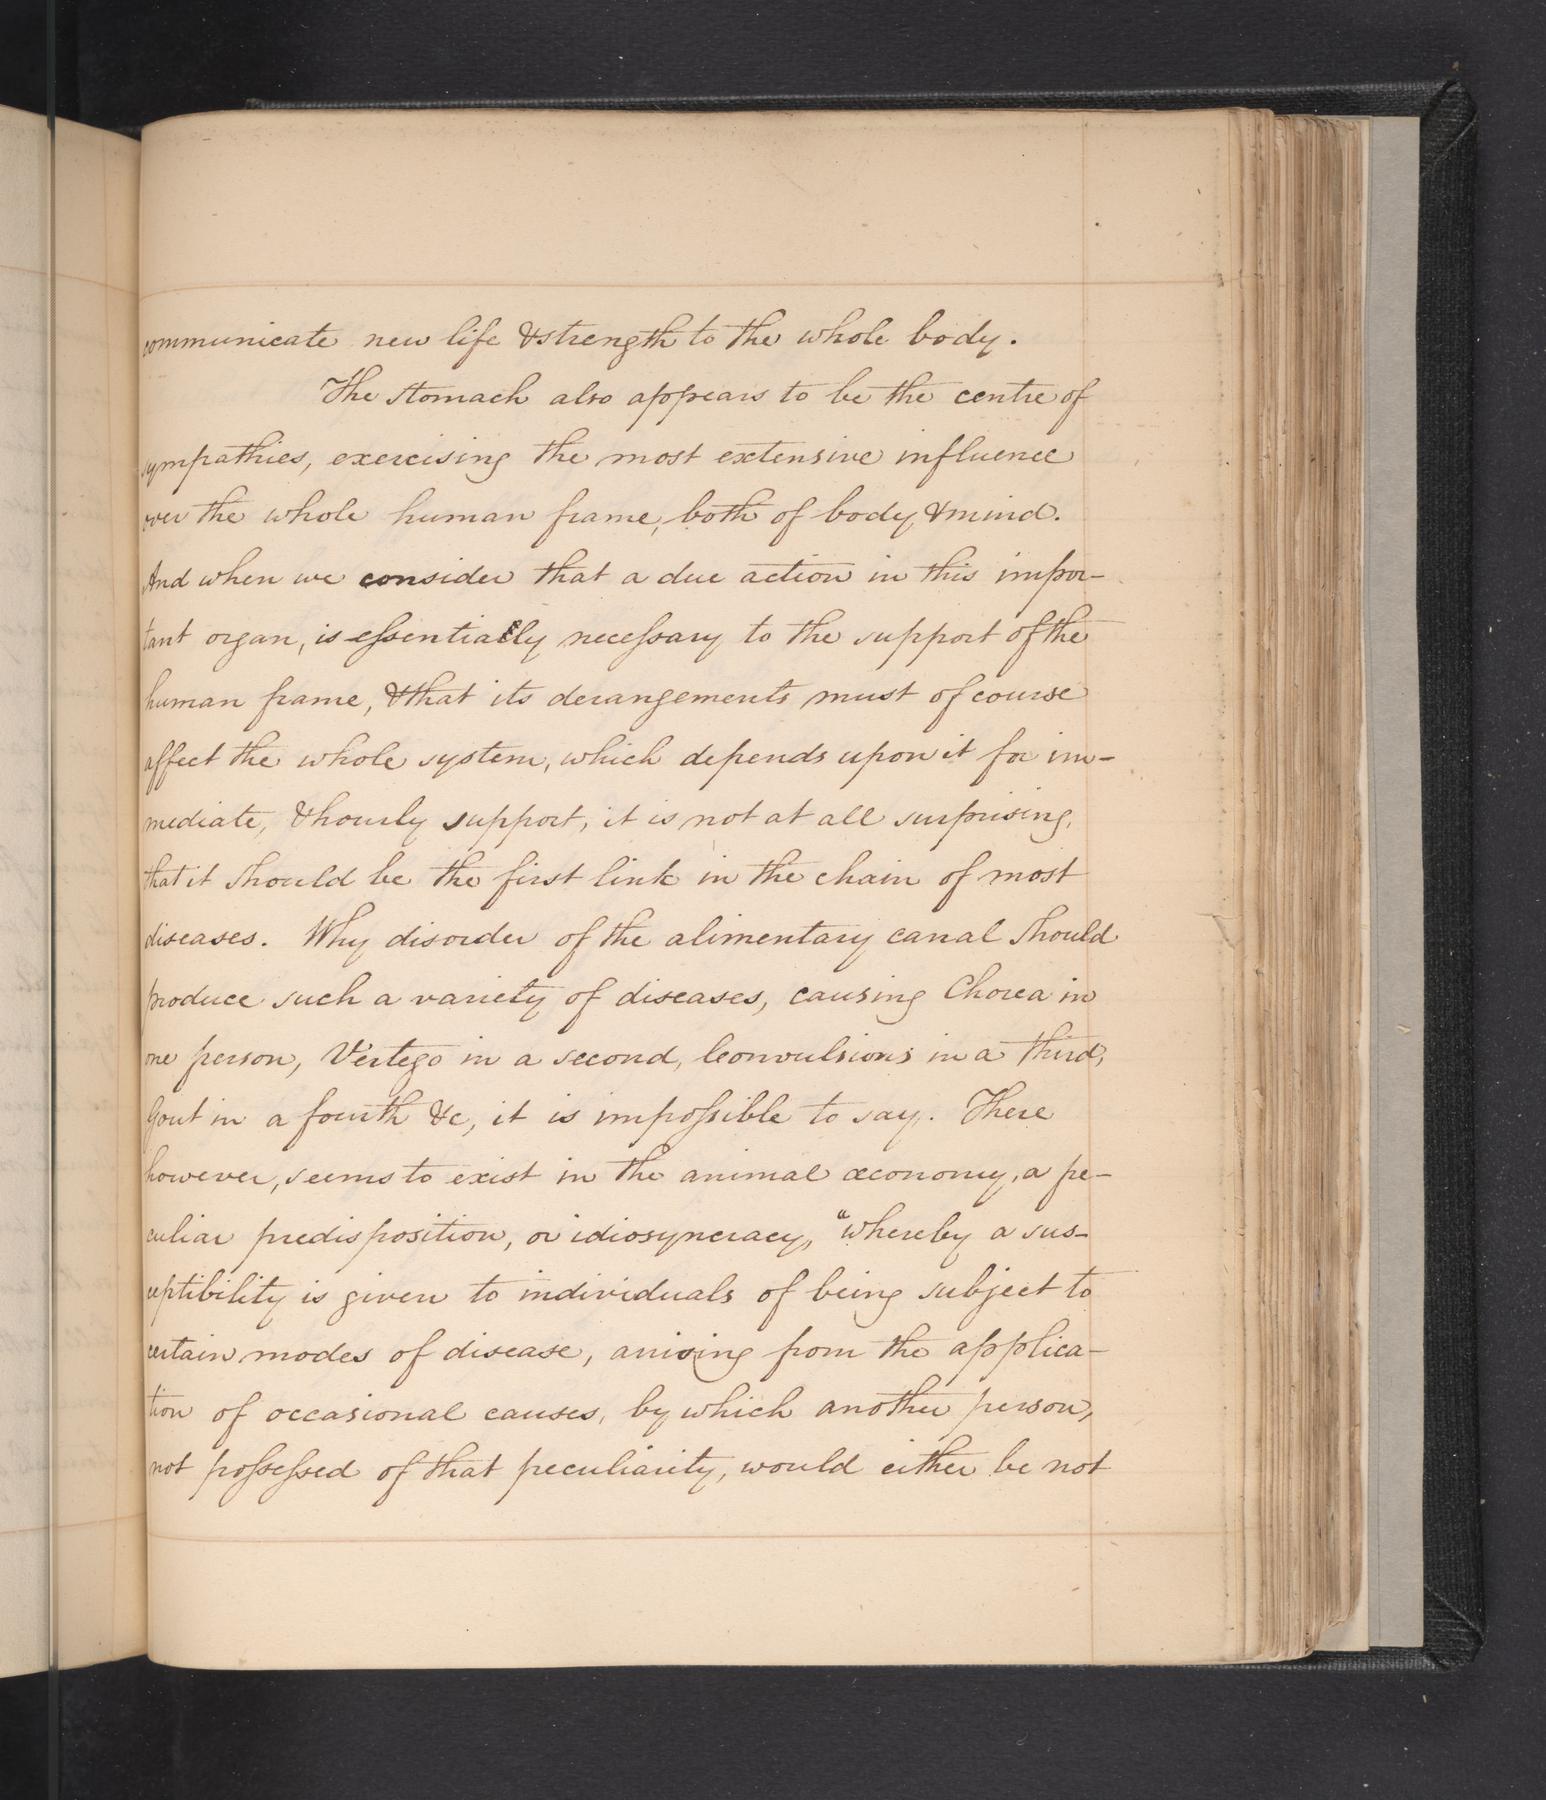 communicate new life & strength to the whole body.
The stomach also appears to be the centre of
sympathies, exercising the most extensive influence
over the whole human frame, both of body & mind.
And when we consider that a due action in this impor-
tant organ, is essentially necessary to the support of the
human frame, & that its derangements must of course
affect the whole system, which depends upon it for im-
mediate, & hourly support, it is not at all surprising,
that it should be the first link in the chain of most
diseases. Why disorder of the alimentary canal should
produce such a variety of diseases, causing Chorea in
one person, Vertego in a second, Convulsions in a third,
Gout in a fourth &c, it is impossible to say. There
however, seems to exist in the animal œconomy, a pe-
culiar predisposition, or idiosyncracy, "whereby a sus-
ceptibility is given to individuals of being subject to
certain modes of disease, arising from the applica-
tion of occasional causes, by which another person,
not possessed of that peculiarity, would either be not